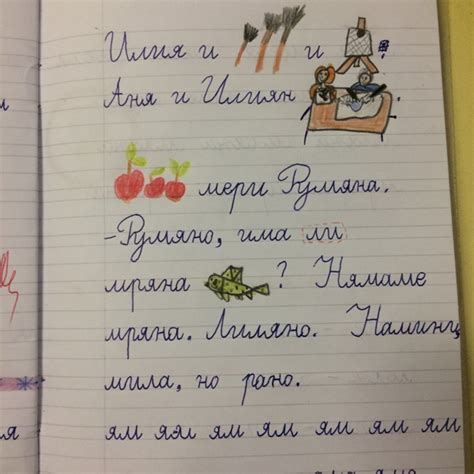 Илия и и
Аня и Илиян .
мери Румяна.
-Румяно, има ли
мряна ? Нямаме
мряна. Лиляно. Наминц
мила, но рано.
ям ям ям ям ям ям ям